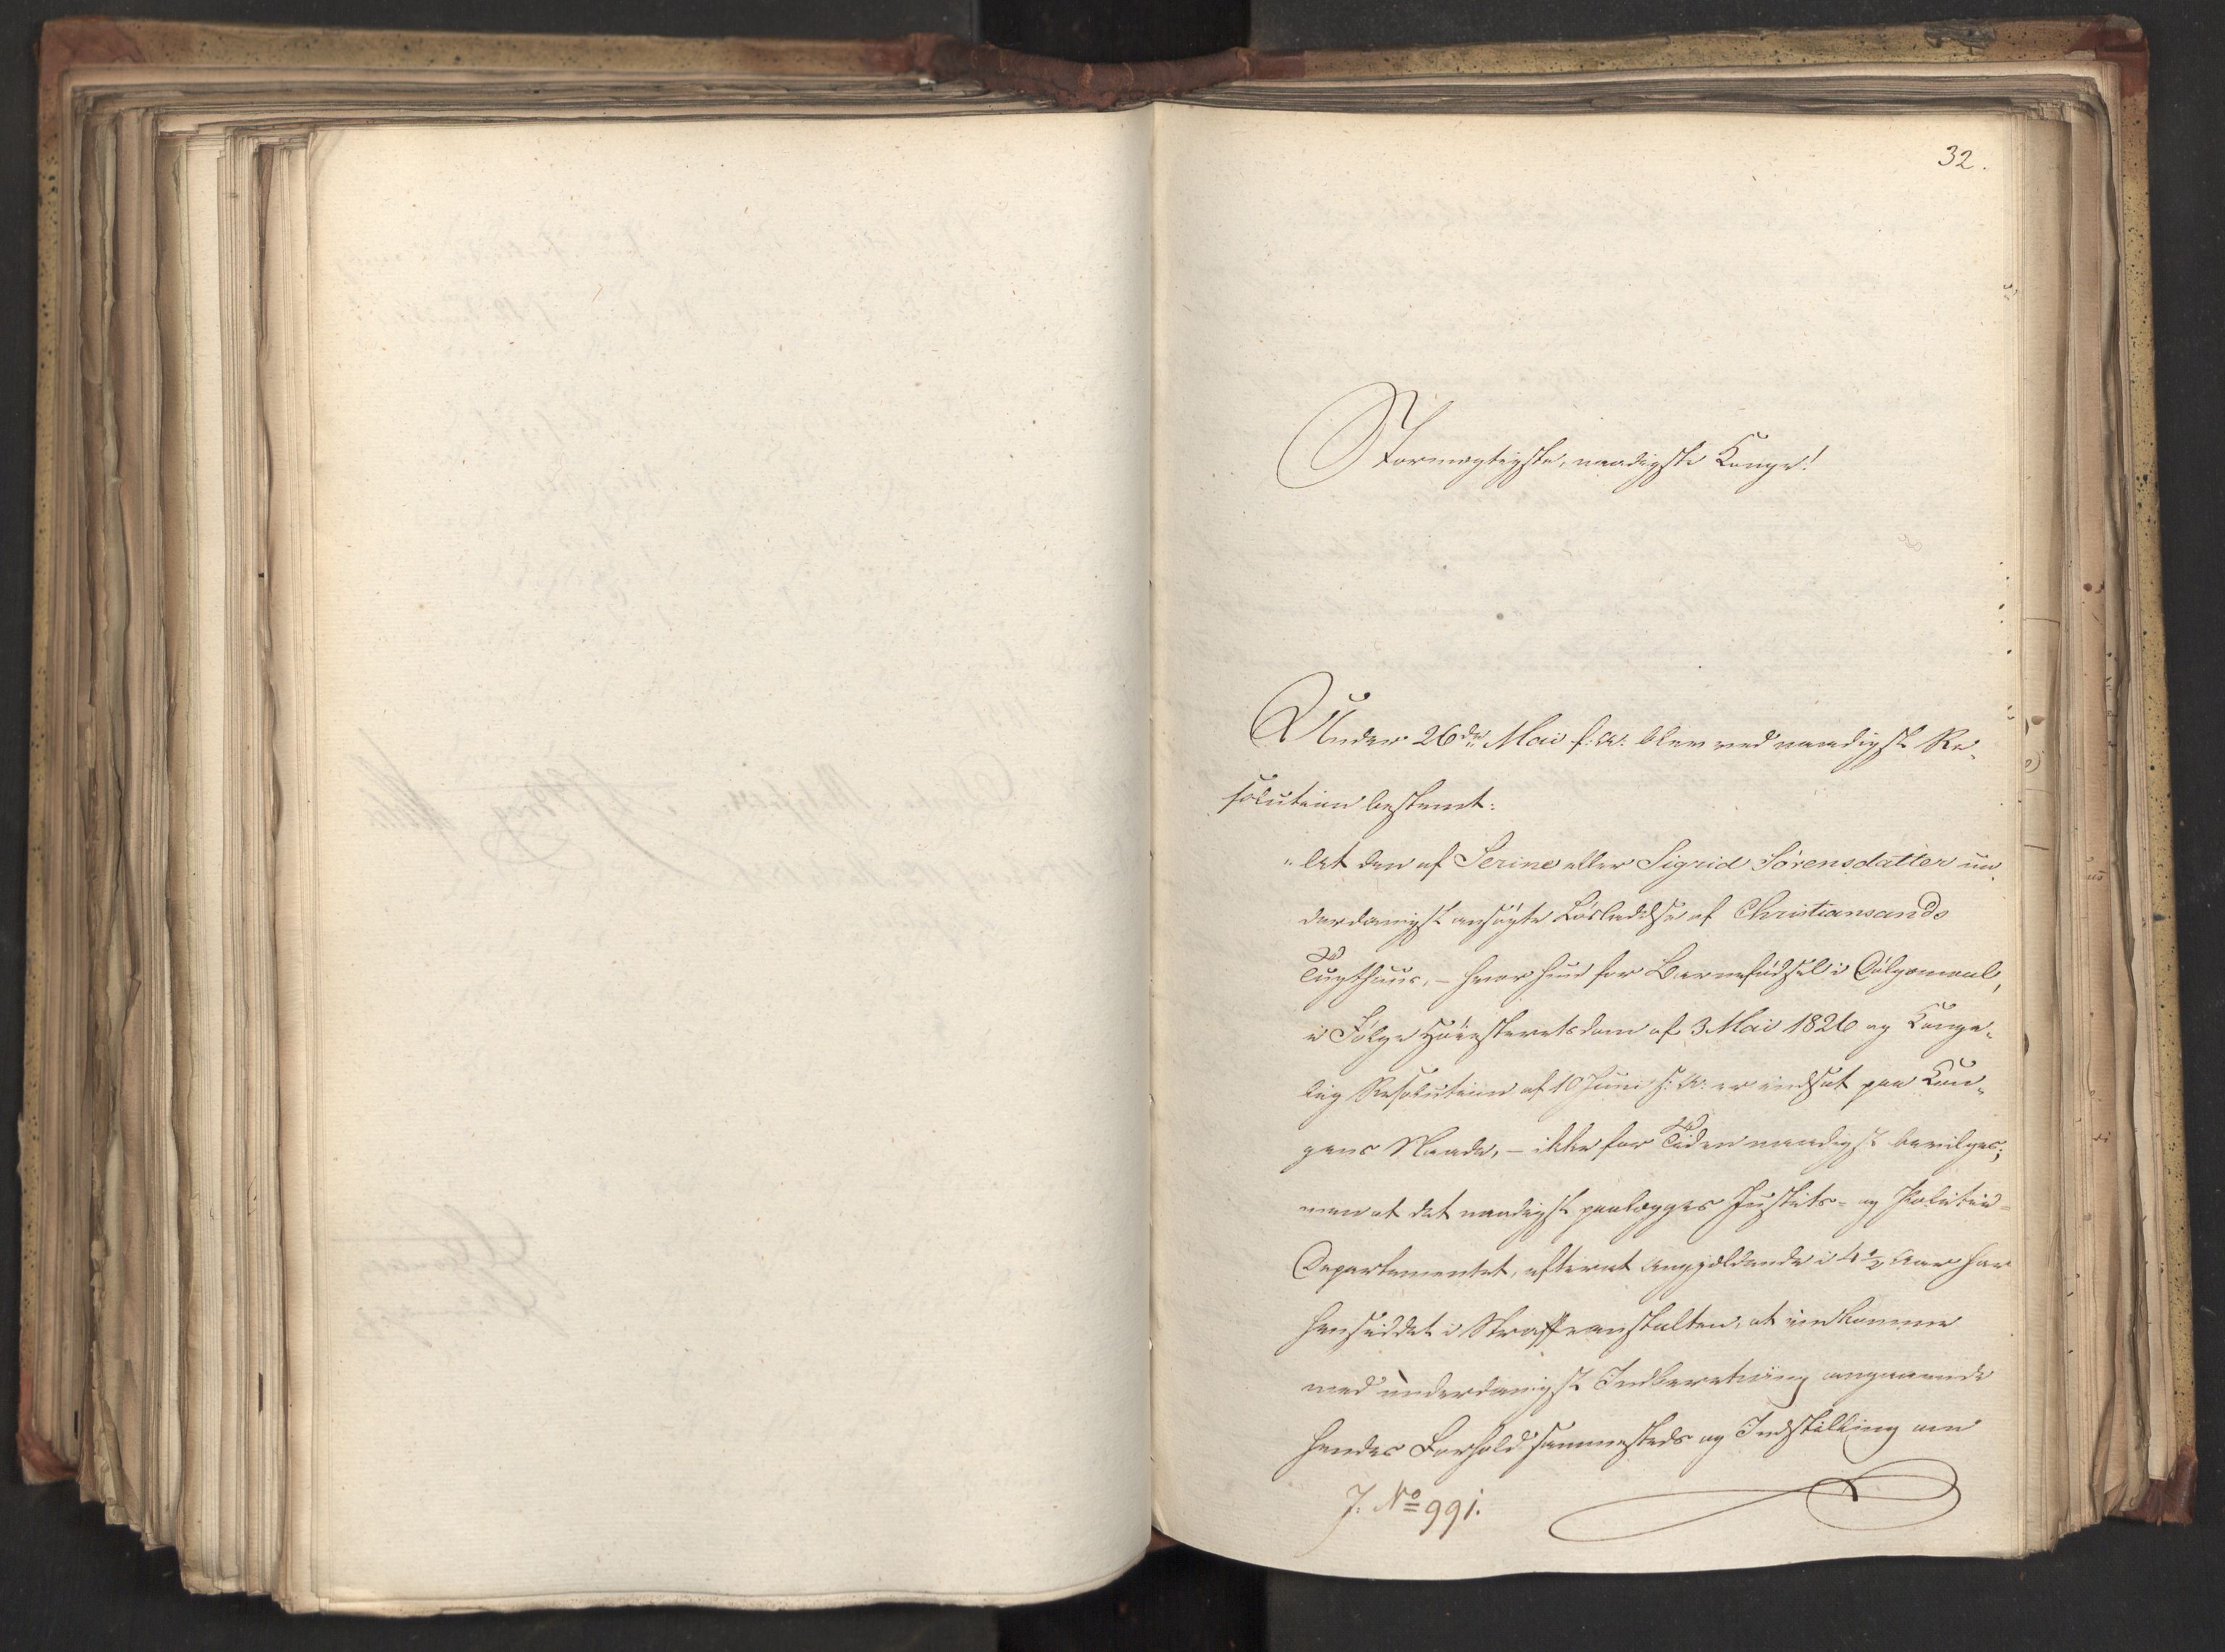 32.
Stormægtigste, naadigste Konge!
Under 26de Mai f: A: blev ved naadigst Re-
solution bestemt:
"At den af Serine eller Sigrid Sörensdatter un-
derdanigst ansøgte Løsladelse af Christiansands
Tugthuus, – hvor hun for Barnefødsel i Dølgsmaal,
i Følge Høiesteretsdom af 3 Mai 1826 og Konge-
lig Resolution af 10 Juni s: A: er indsat paa Kon-
gens Naade, – ikke for Tiden naadigst bevilges;
men at det naadigst paalægges Justits- og Politie-
Departementet, efterat Angjældende i 4½ Aar har
hensiddet i Straffeanstalten, at indkomme
med underdanigst Indberetning angaaende
hendes Forhold sammesteds og Indstilling om
J. No 991.